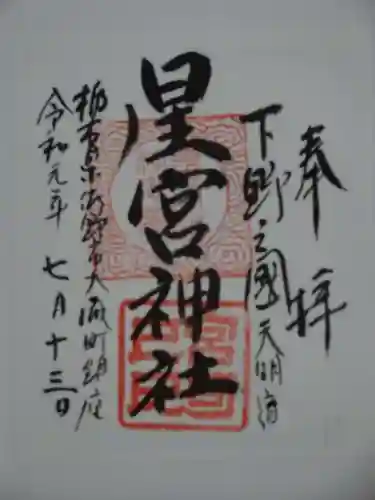 奉拝
下野之國天明
星宮神社
栃木県佐野市大蔵町鎮座
令和元年七月十三日